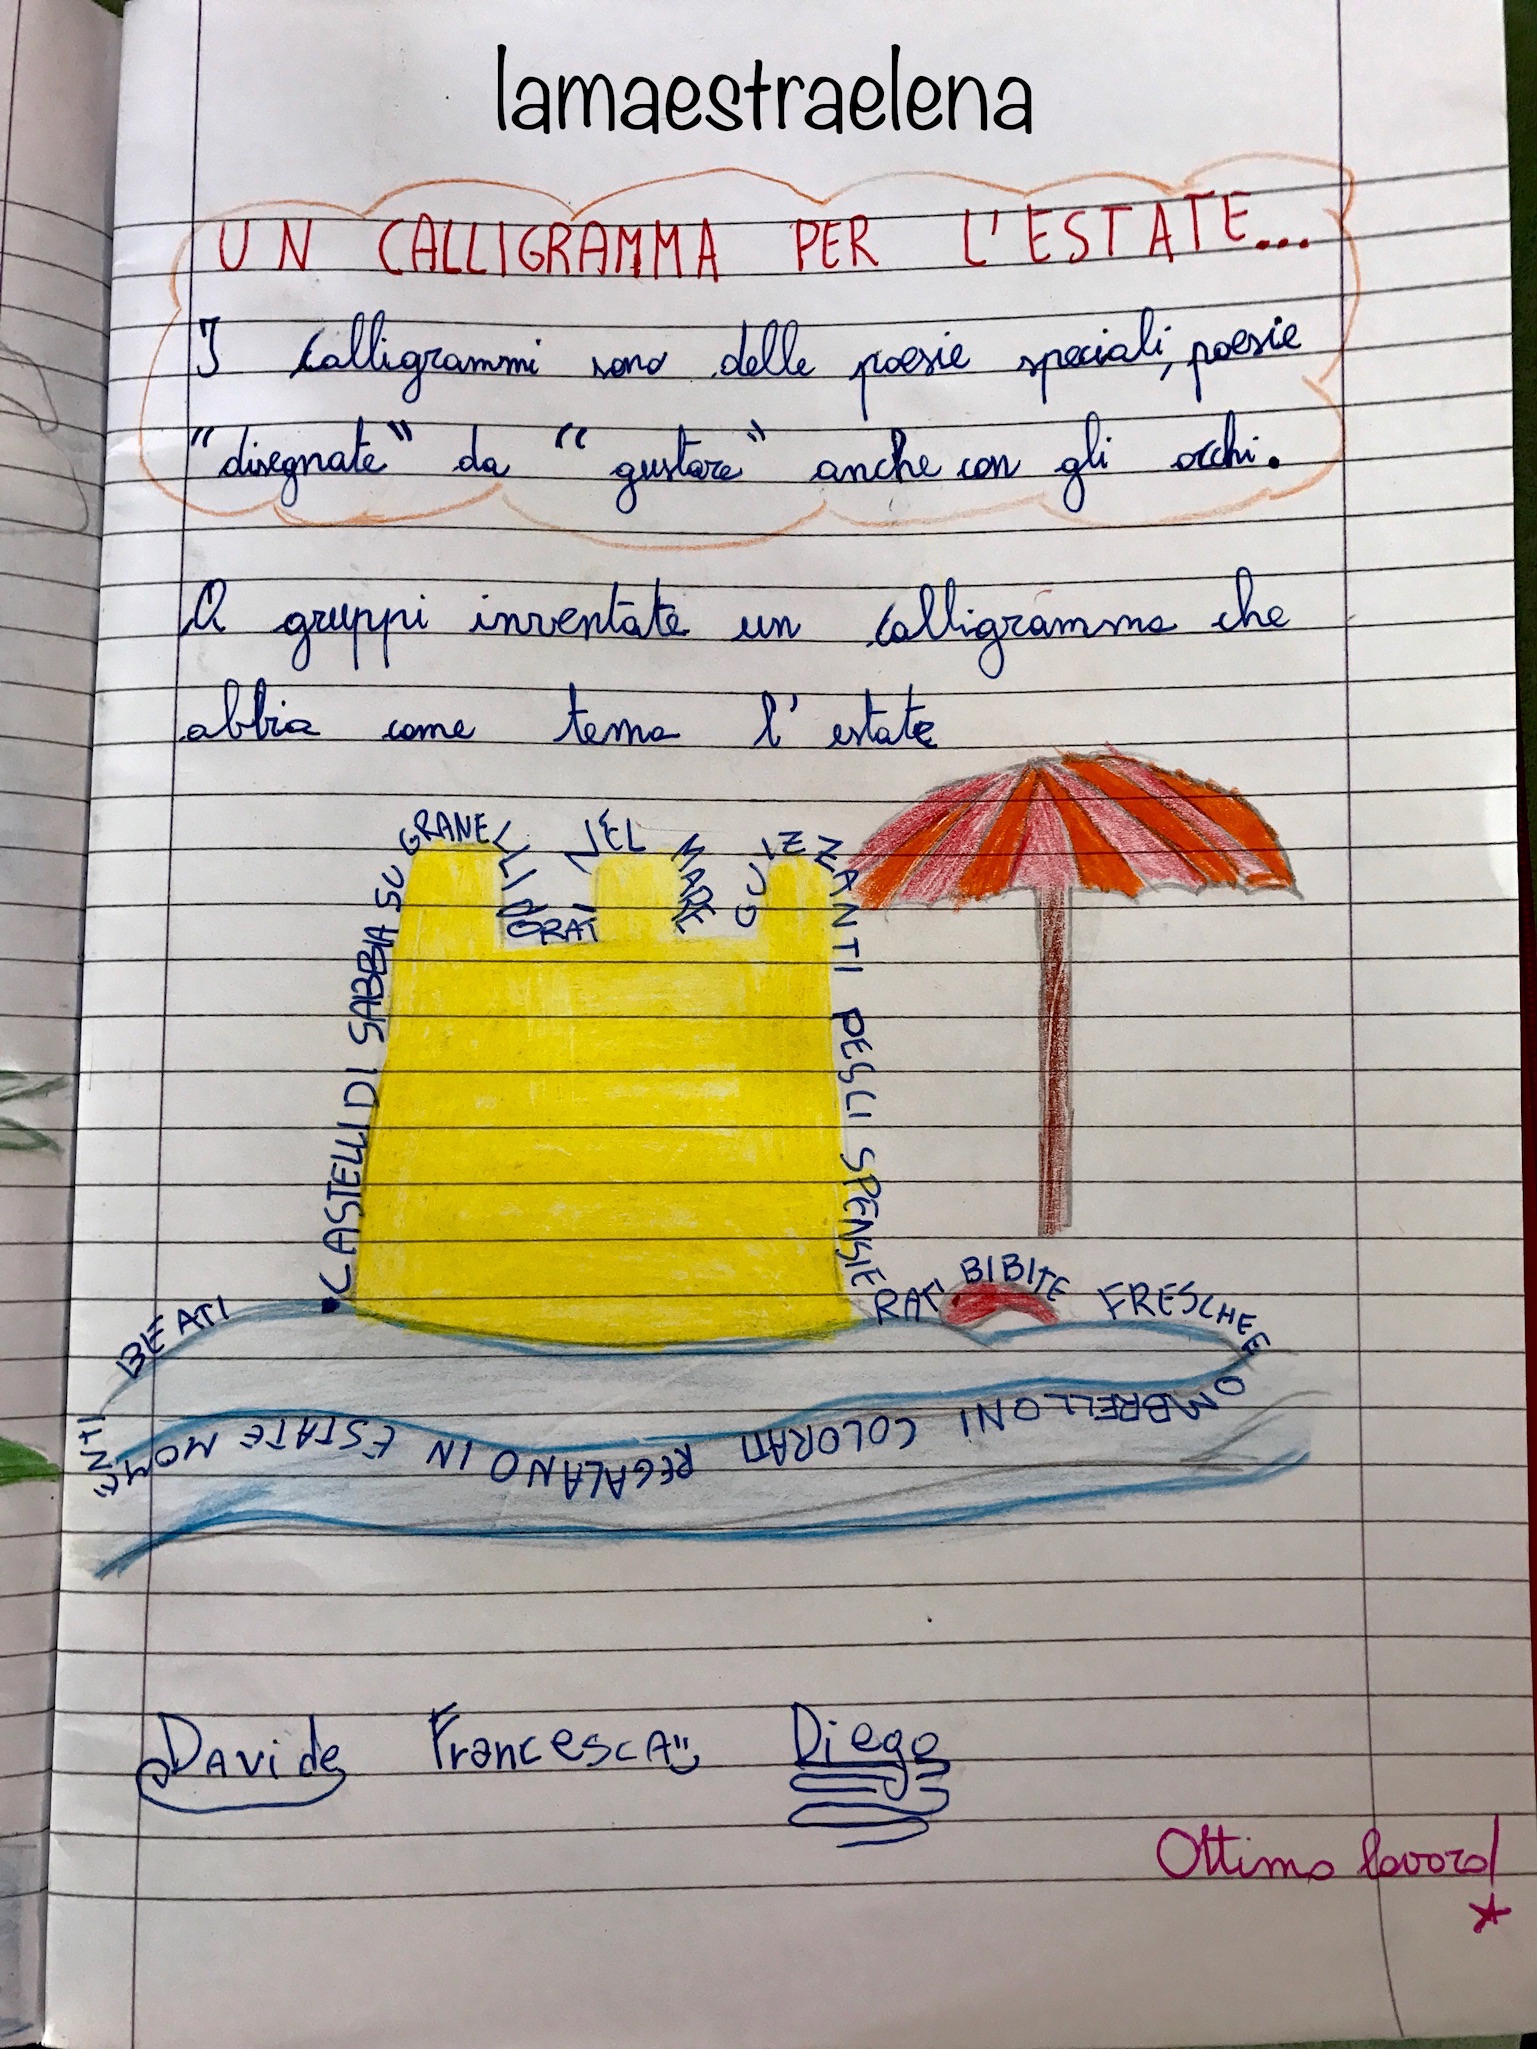 lamaestraelena
UN CALLIGRAMMA PER L'ESTATE...
I calligrammi sono delle poesie speciali, poesie
"disegnate" da "gustare" anche con gli occhi.
A gruppi inventate un calligramma che
abbia come tema l'estate
CASTELLI DI SABBIA SU GRANELLI DORATI NEL MARE GUIZZANTI PESCI SPENSIERATI BIBITE FRESCHE E OMBRELLONI COLORATI REGALANO IN ESTATE MOMENTI BEATI
Davide Francesca Diego
Ottimo lavoro!